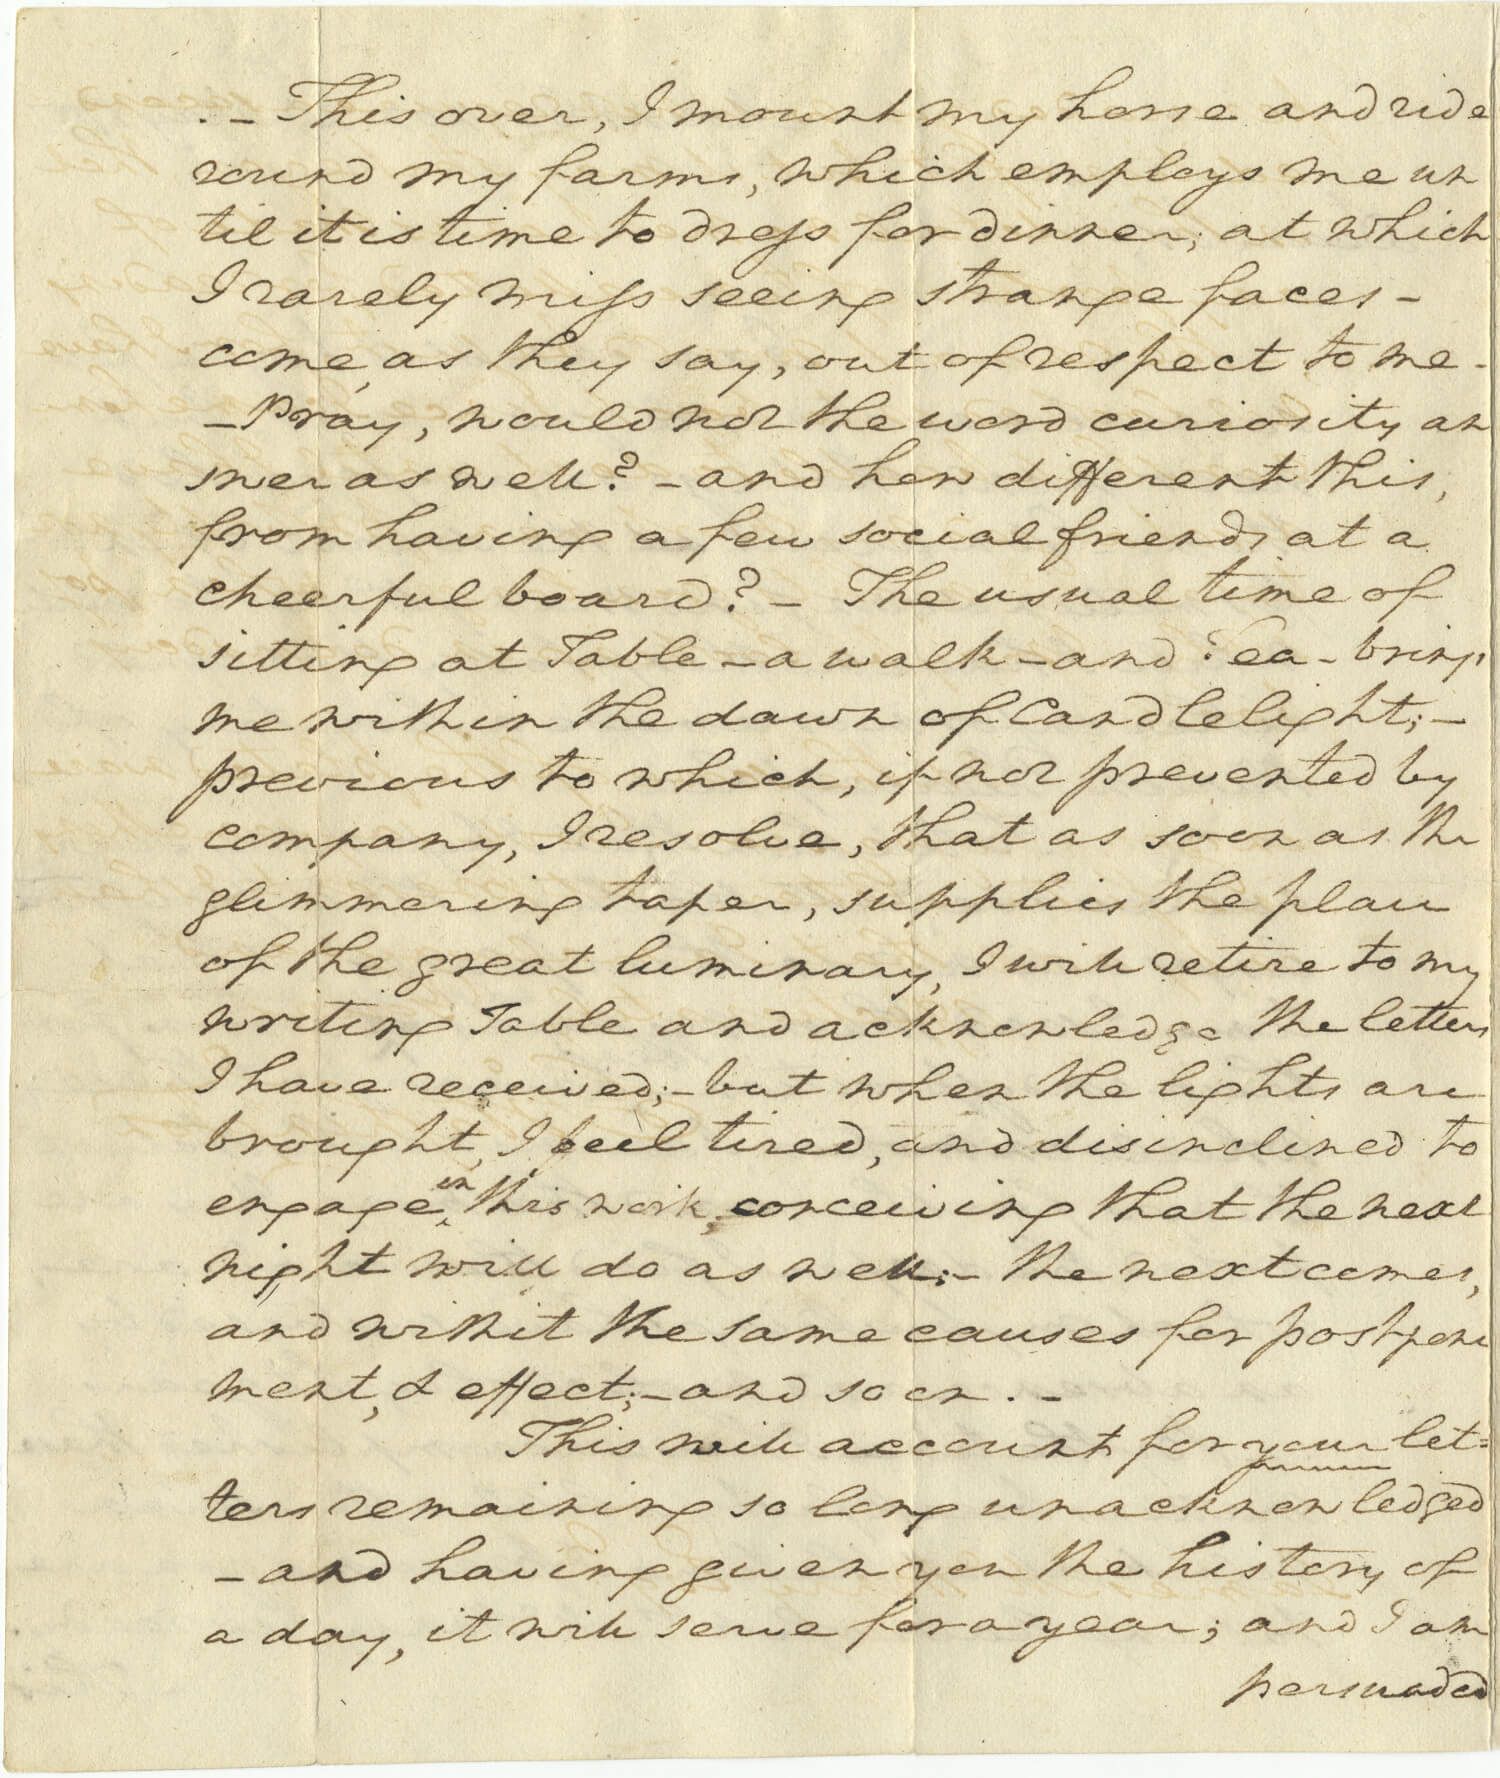 . – This over, I mount my horse and ride
round my farms, which employs me un
til it is time to dress for dinner; at which
I rarely miss seeing strange faces –
come, as they say, out of respect to me –
– Pray, would not the word curiosity an
swer as well? – and how different this,
from having a few social friends at a
cheerful board? – The usual time of
sitting at Table – a walk – and Tea – brings
me within the dawn of Candlelight; –
previous to which, if not prevented by
company, I resolve, that as soon as the
glimmering taper, supplies the place
of the great luminary, I will retire to my
writing Table and acknowledge the letters
I have received; – but when the lights are
brought, I feel tired, and disinclined to
engage in this work, conceiving that the next
night will do as well: – the next comes,
and with it the same causes for postpone
ment, & effect; – and so on. –
This will account for your let=
ters remaining so long unacknowledged
– and having given you the history of
a day, it will serve for a year; and I am
persuaded